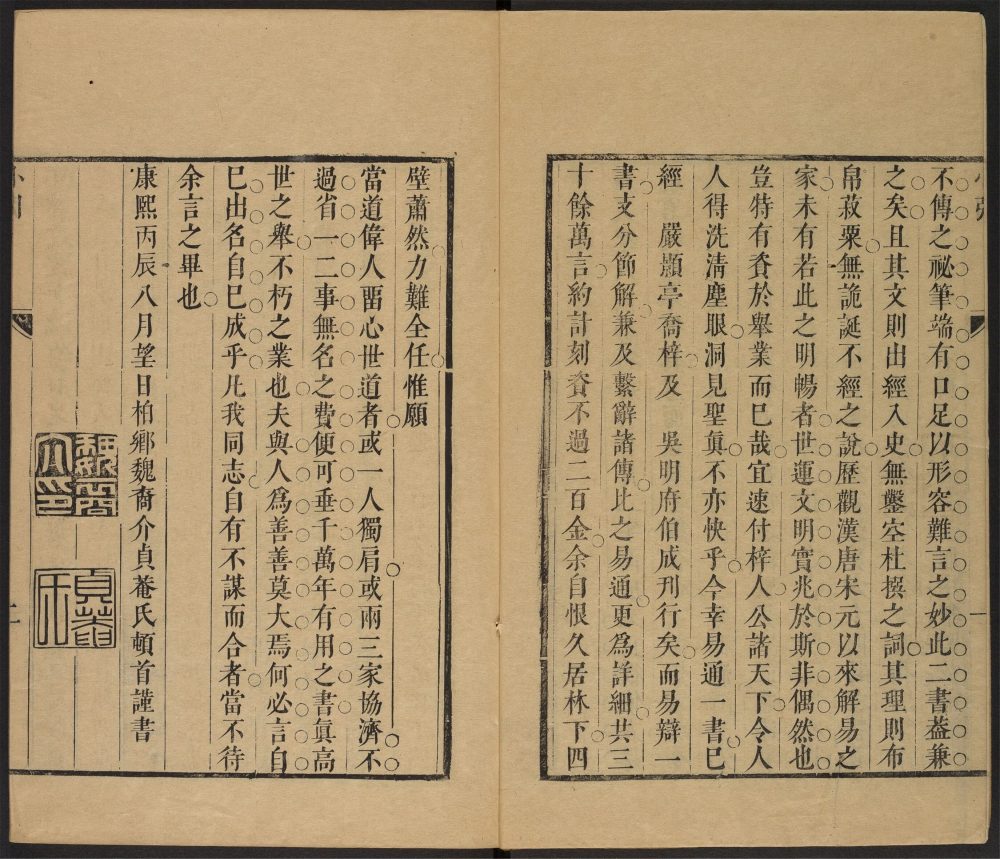 不傳之祕筆端有口足以形容難言之妙此二書葢兼
之矣且其文則出經入史無鑿空杜撰之詞其理則布
帛菽粟無詭誕不經之說歷觀漢唐宋元以來解易之
家未有若此之明暢者世運文明實兆於斯非偶然也
豈特有資於舉業而巳哉宜速付梓人公諸天下令人
人得洗清塵眼洞見聖眞不亦快乎今幸易通一書巳
經　嚴顥亭喬梓及　吳明府伯成刊行矣而易辯一
書支分節解兼及繫辭諸傳比之易通更爲詳細共三
十餘萬言約計刻資不過二百金余自恨久居林下四
壁蕭然力難全任惟願
當道偉人畱心世道者或一人獨肩或兩三家協濟不
過省一二事無名之費便可垂千萬年有用之書眞高
世之舉不朽之業也夫與人爲善善莫大焉何必言自
巳出名自巳成乎凡我同志自有不謀而合者當不待
余言之畢也
康熙丙辰八月望日柏鄉魏裔介貞菴氏頓首謹書
魏裔介印
貞菴氏